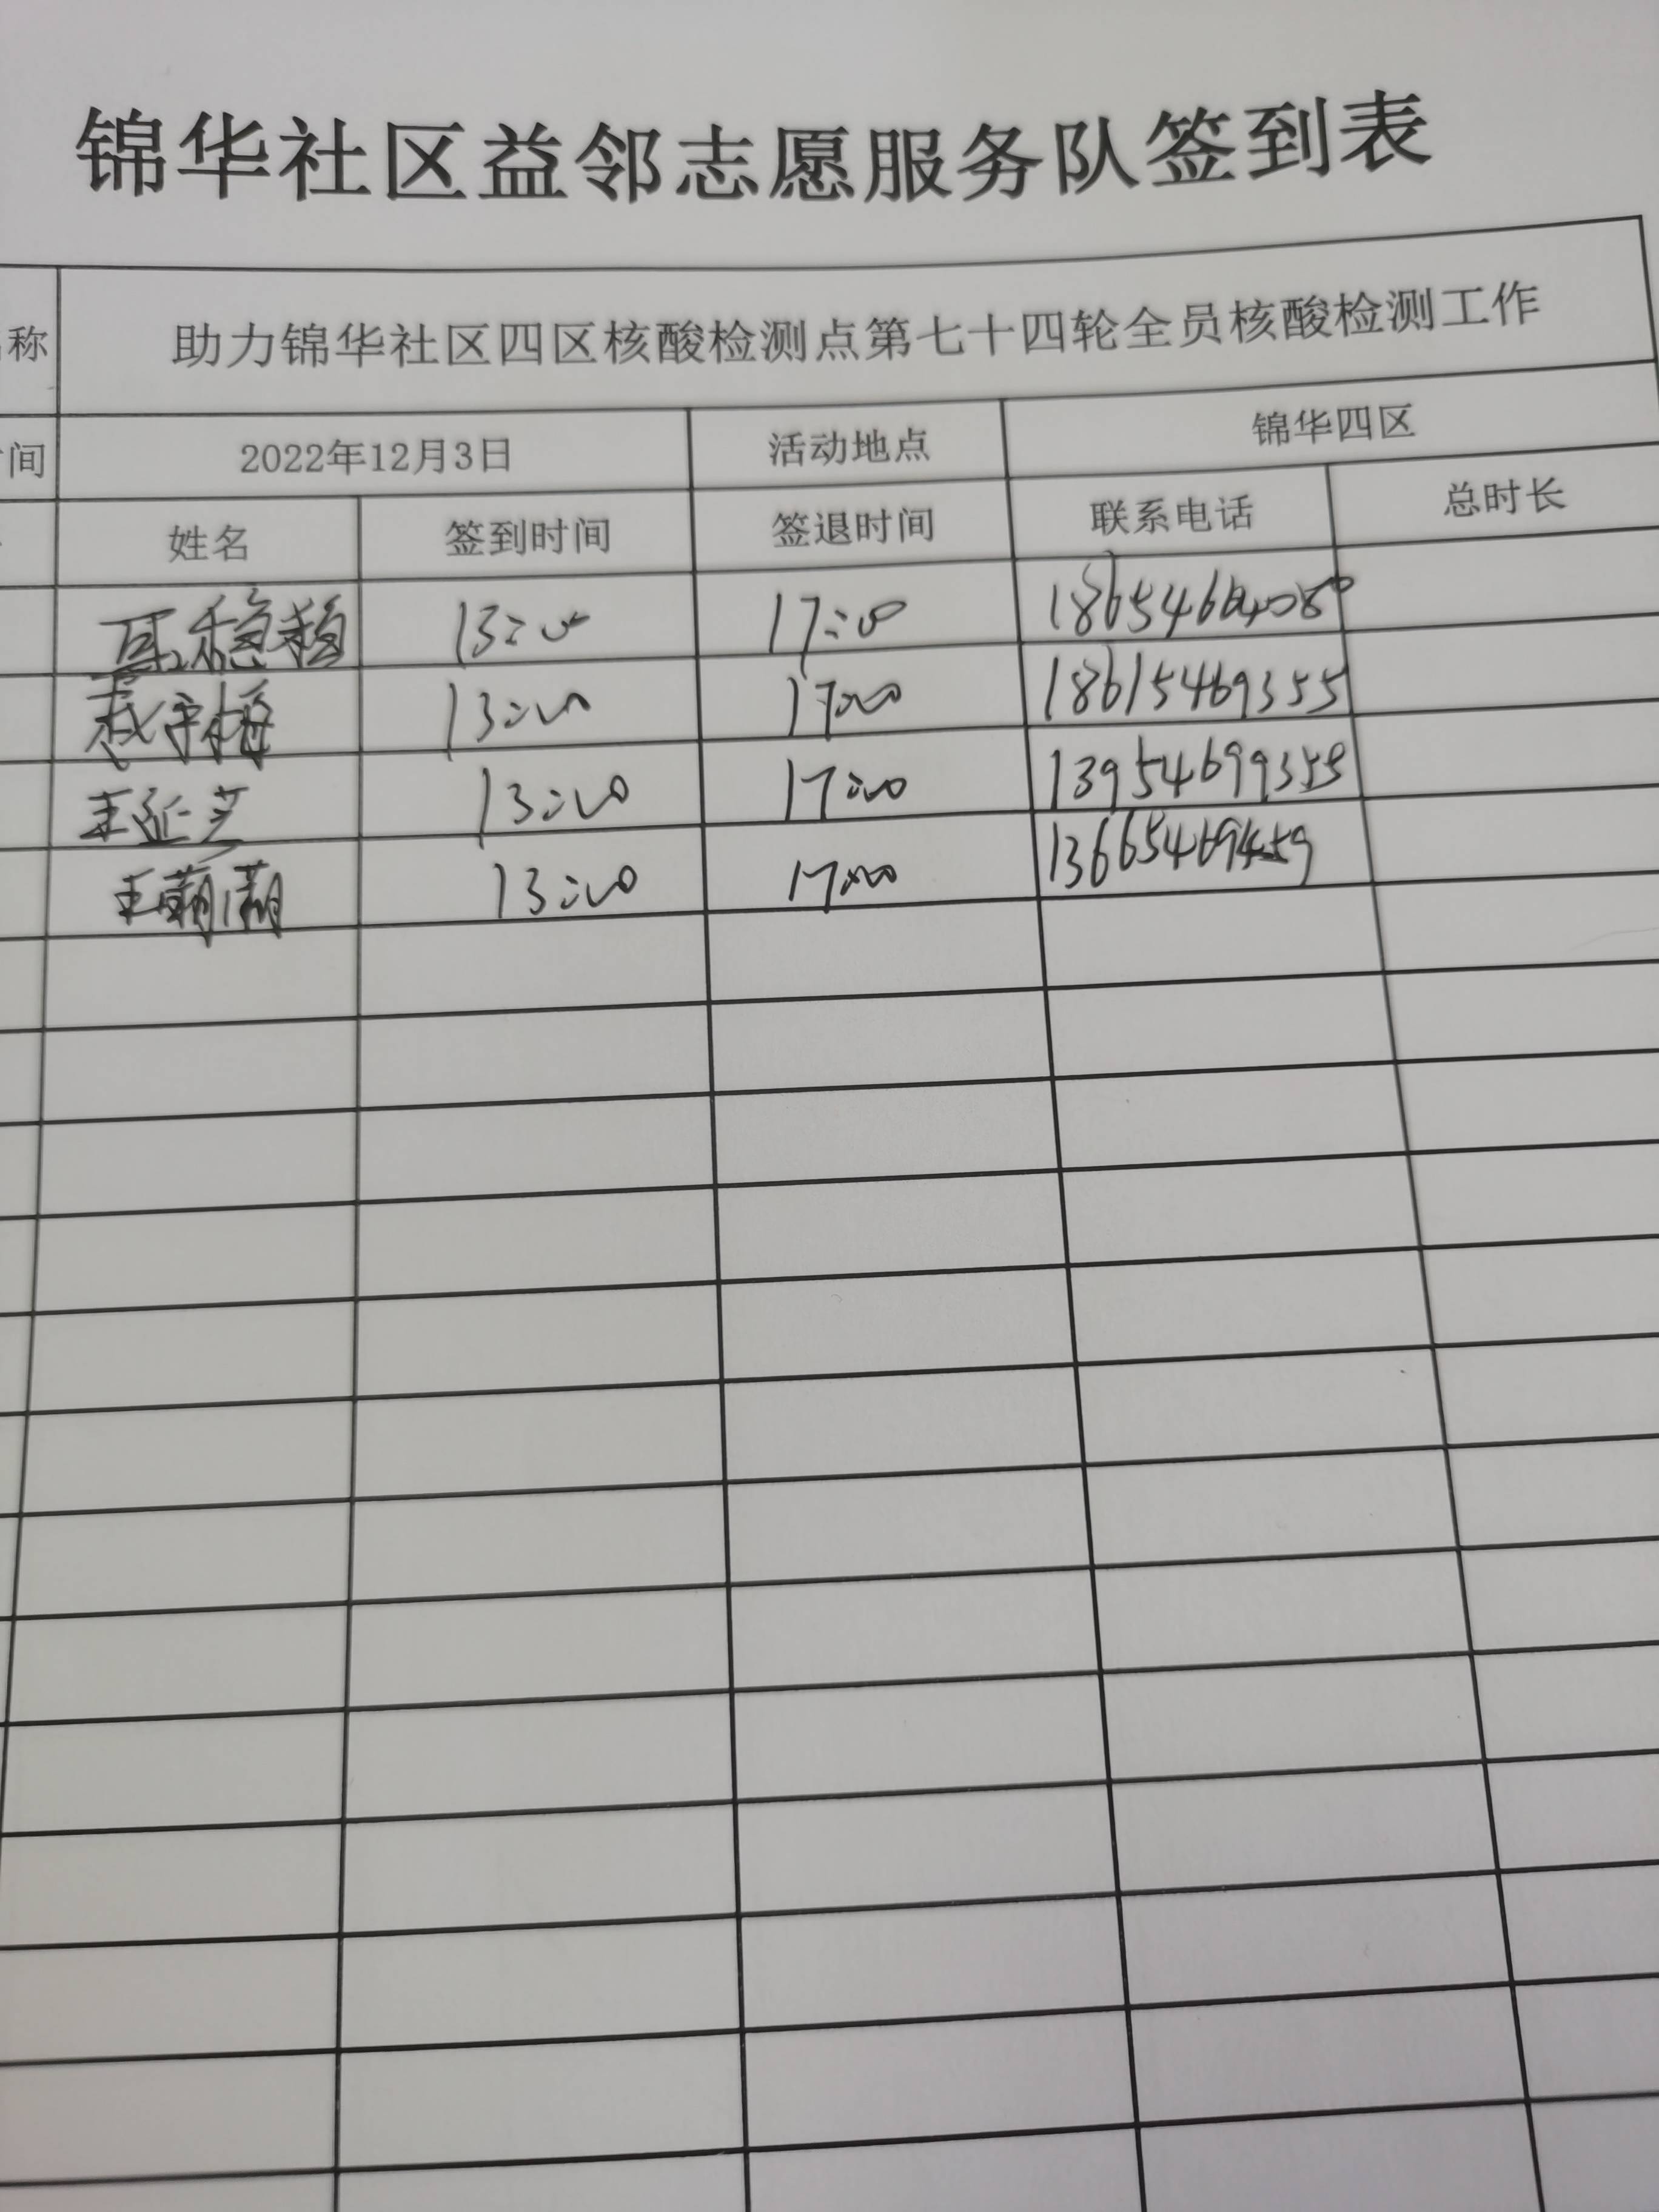 锦华社区益邻志愿服务队签到表
称 助力锦华社区四区核酸检测点第七十四轮全员核酸检测工作
间 2022年12月3日 活动地点 锦华四区
姓名 签到时间 签退时间 联系电话 总时长
稳稳 13:00 17:00
13:00 17:00 18615469355
王延芝 13:00 17:00 13954699355
王萌萌 13:00 17:00